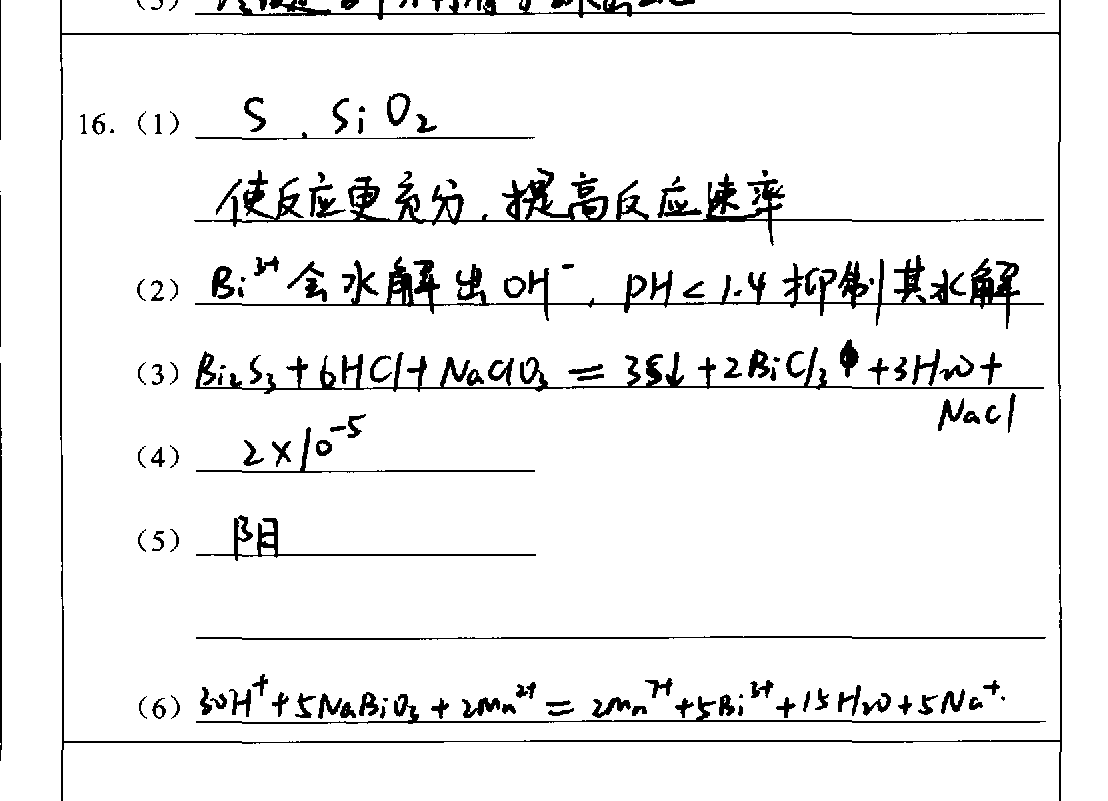 16.（1） S . SiO₂
使反应更充分，提高反应速率
（2） Bi³⁺会水解出OH⁻，pH<1.4抑制其水解
（3） Bi₂S₃+6HCl+NaClO₃=3S↓+2BiCl₃+3H₂O+
NaCl
（4） 2×10⁻⁵
（5） 阳
（6） 30H⁺+5NaBiO₃+2Mn²⁺=2Mn⁷⁺+5Bi³⁺+15H₂O+5Na⁺.